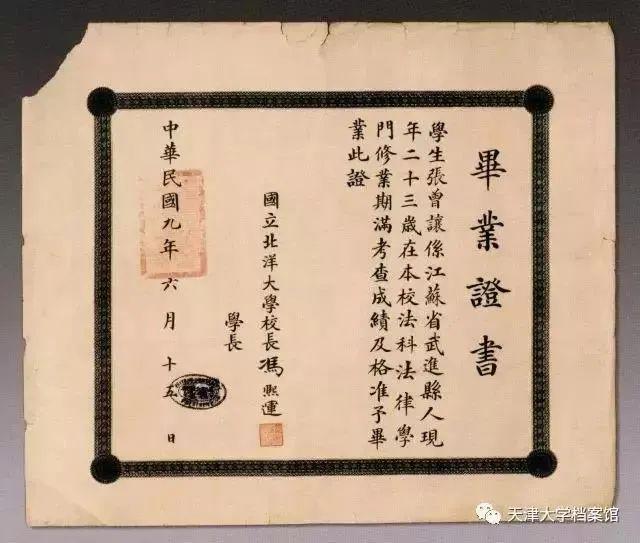 畢業證書
學生張曾讓係江蘇省武進縣人現
年二十三歲在本校法科法律學
門修業期滿考查成績及格准予畢
業此證
國立北洋大學校長馮熙運
學長
中華民國九年六月十五日
天津大学档案馆